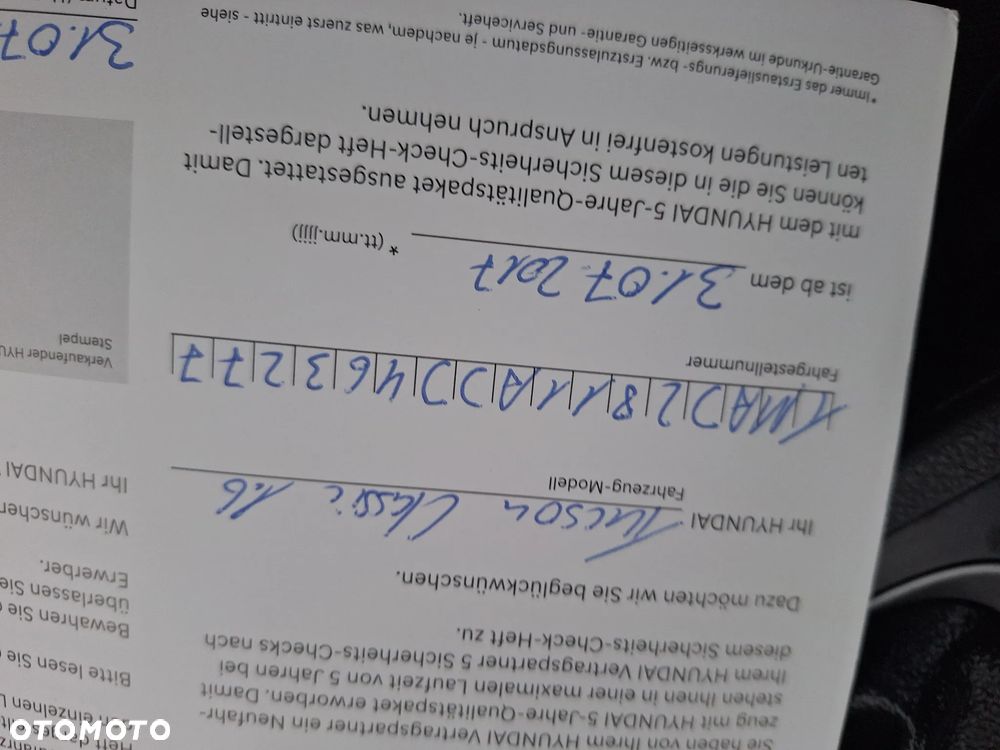 Sie haben von Ihrem HYUNDAI Vertragspartner ein Neufahr-
zeug mit HYUNDAI 5-Jahre-Qualitätspaket erworben. Damit
stehen Ihnen in einer maximalen Laufzeit von 5 Jahren bei
Ihrem HYUNDAI Vertragspartner 5 Sicherheits-Checks nach
diesem Sicherheits-Check-Heft zu.
Dazu möchten wir Sie beglückwünschen.
Ihr HYUNDAI Tucson Classic 1.6
Fahrzeug-Modell
TMAJ2811AJJ463277
Fahrgestellnummer
ist ab dem 31.07.2017 * (tt.mm.jjjj)
mit dem HYUNDAI 5-Jahre-Qualitätspaket ausgestattet. Damit
können Sie die in diesem Sicherheits-Check-Heft dargestell-
ten Leistungen kostenfrei in Anspruch nehmen.
*Immer das Erstauslieferungs- bzw. Erstzulassungsdatum - je nachdem, was zuerst eintritt - siehe
Garantie-Urkunde im werksseitigen Garantie- und Serviceheft.
Heft
einzelnen
Bitte lesen Sie
Bewahren Sie
überlassen Sie
Erwerber.
Wir wünschen
Ihr HYUNDAI
Verkaufender
Stempel
31.07
OTOMOTO